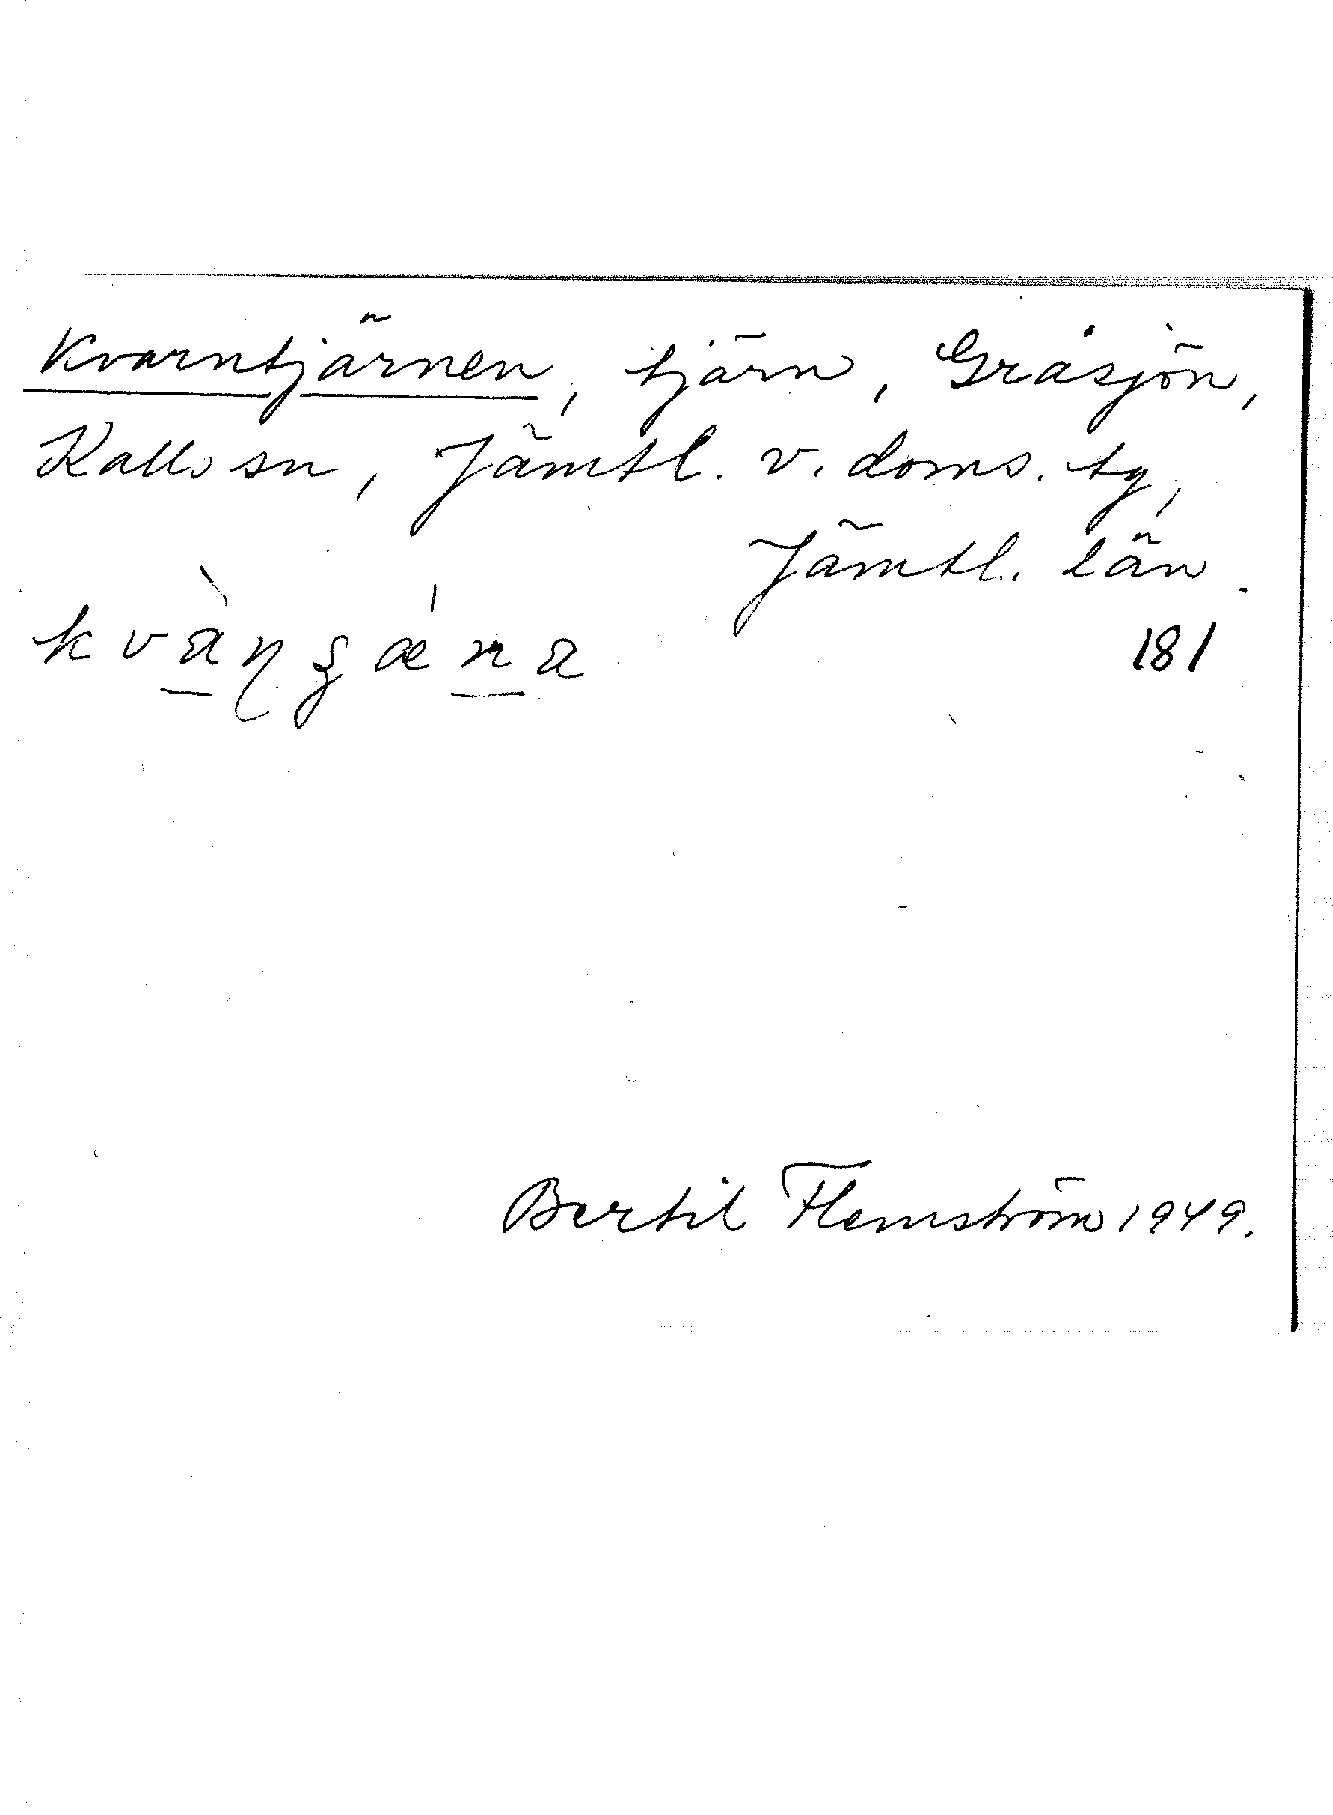 Kvarntjärnen, tjärn, Gråsjön,
Kalls sn, Jämtl. v. doms. tg,
Jämtl. län.
181
Bertil Flemström 1949.